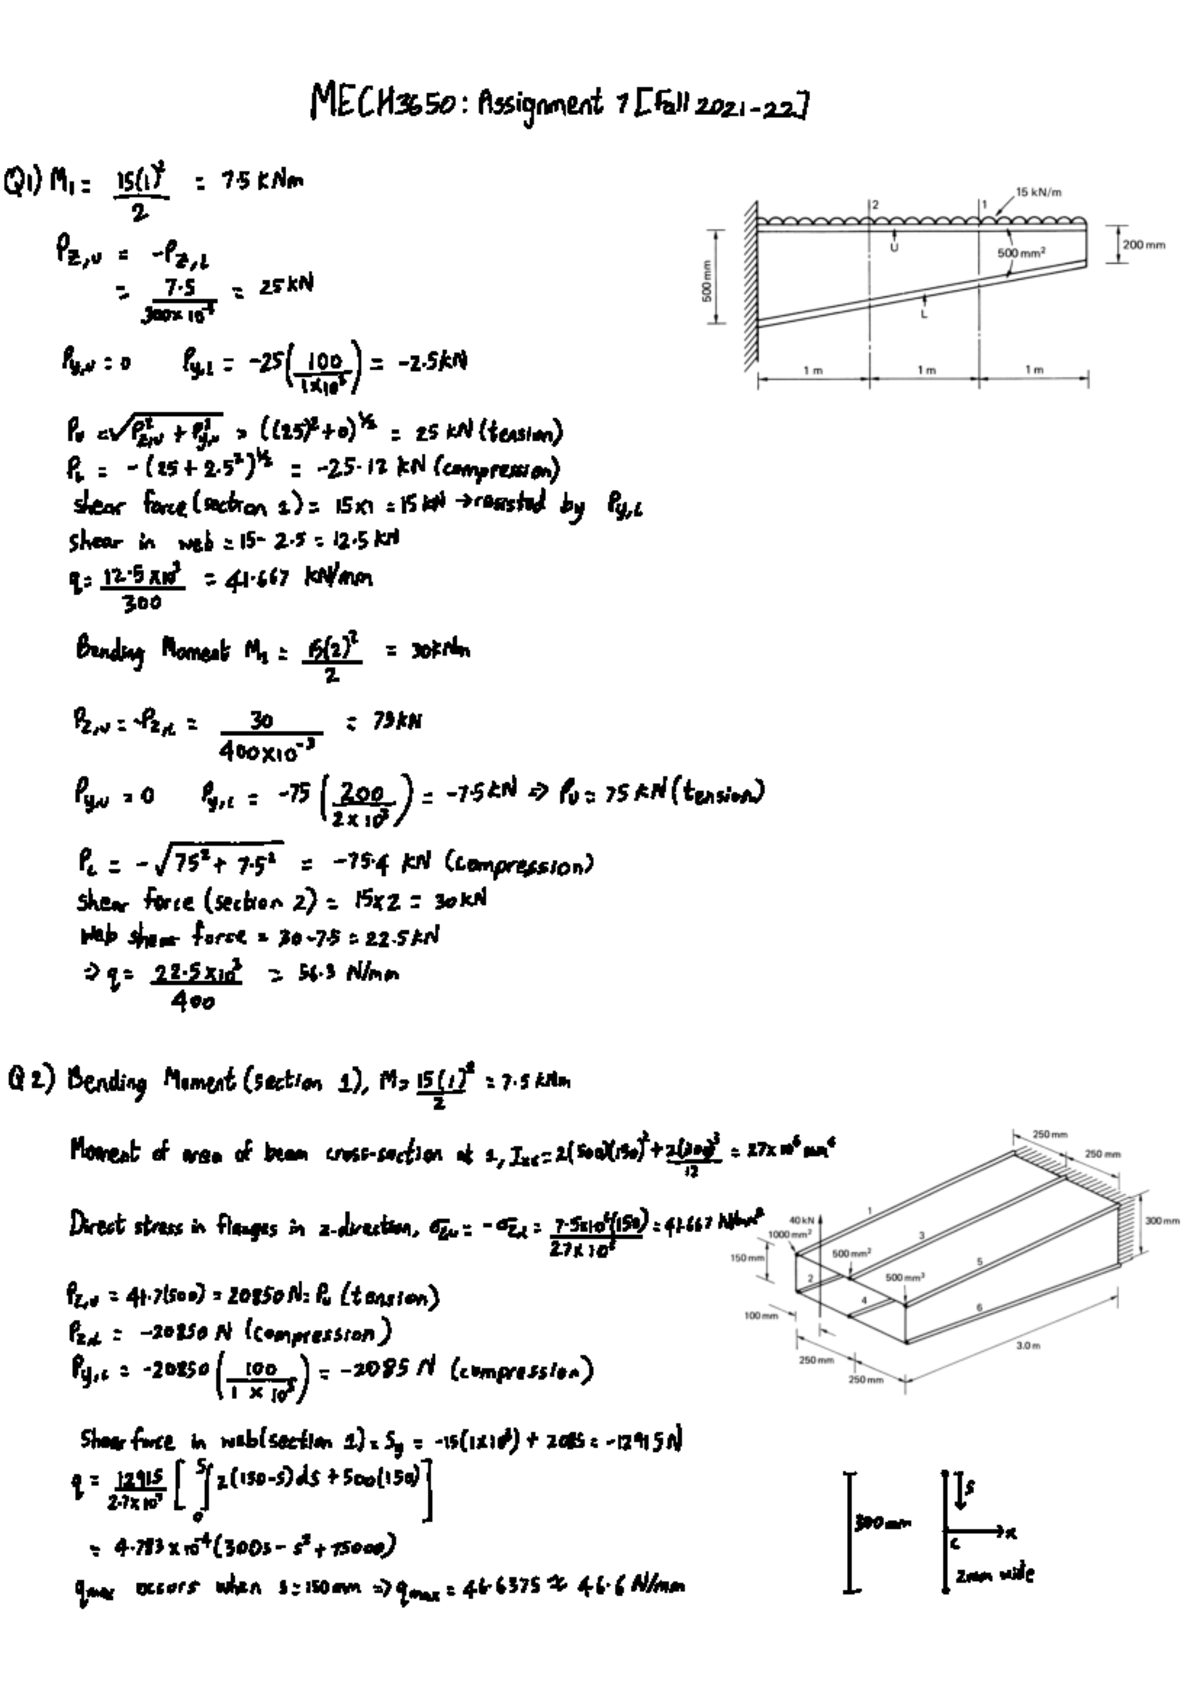 MECH3650: Assignment 7 [Fall 2021-22]
Q1) M₁ = 15(1)²/2 = 7.5 kNm
P_z,u = -P_z,L
= 7.5/300×10⁻³ = 25 kN
P_y,u = 0 P_y,L = -25(100/1×10³) = -2.5kN
P_u = √(P²_z,u + P²_y,u) = ((25)²+0)^1/2 = 25 kN (tension)
P_L = -(25 + 2.5²)^1/2 = -25.12 kN (compression)
shear force (section 1) = 15×1 = 15 kN → resisted by P_y,L
shear in web = 15 - 2.5 = 12.5 kN
q = 12.5×10³/300 = 41.667 kN/mm
Bending Moment M₂ = 15(2)²/2 = 30kNm
P_z,u = -P_z,L = 30/400×10⁻³ = 75kN
P_y,u = 0 P_y,L = -75(200/2×10³) = -7.5kN ⇒ P_u = 75 kN (tension)
P_L = -√(75² + 7.5²) = -75.4 kN (compression)
shear force (section 2) = 15×2 = 30kN
Web shear force = 30-7.5 = 22.5kN
⇒ q = 22.5×10³/400 = 56.3 N/mm
15 kN/m
2
1
U
500 mm²
200 mm
500 mm
L
1 m
1 m
1 m
Q2) Bending Moment (section 1), M = 15(1)²/2 = 7.5 kNm
Moment of area of beam cross-section at 1, I_xx = 2(500)(150)² + 2(300)³/12 = 27×10⁶ mm⁴
Direct stress in flanges in z-direction, σ_z,u = -σ_z,L = 7.5×10⁶(150)/27×10⁶ = 41.667 N/mm²
P_z,u = 41.7(500) = 20850 N = P_u (tension)
P_z,L = -20850 N (compression)
P_y,L = -20850(100/1×10³) = -2085 N (compression)
Shear force in web (section 1) = S_y = -15(1×10³) + 2085 = -12915 N
q = 12915/2.7×10⁷ [∫₀ˢ 2(150-s)ds + 500(150)]
= 4.783×10⁻⁴(300s - s² + 75000)
q_max occurs when s = 150mm ⇒ q_max = 46.6375 ≈ 46.6 N/mm
250 mm
250 mm
300 mm
40 kN
1000 mm²
500 mm²
500 mm²
150 mm
100 mm
250 mm
250 mm
3.0 m
1
2
3
4
5
6
300mm
s
x
c
2mm wide